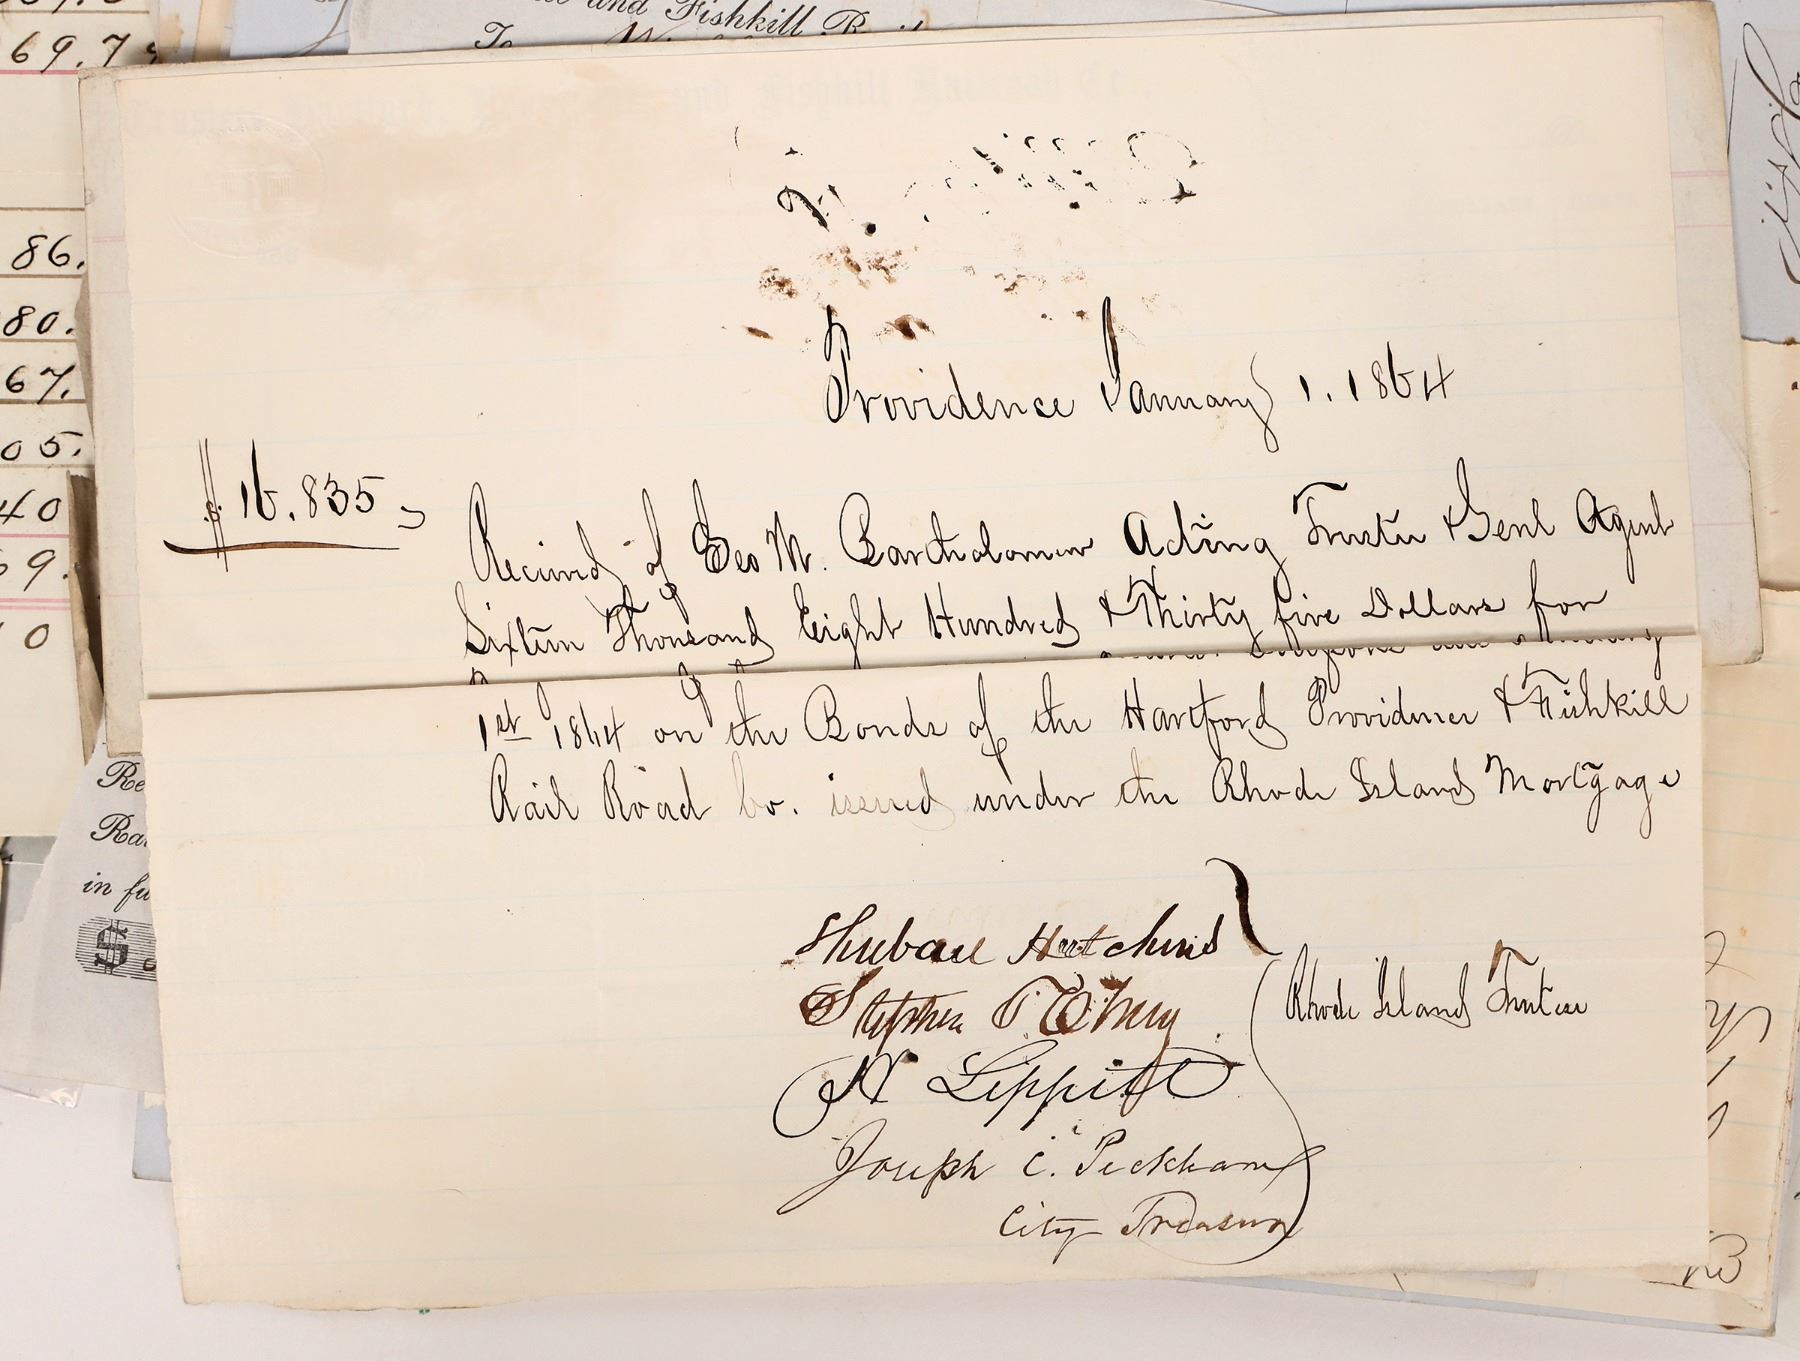 69.7
and Fishkill R
86.
80.
67.
05.
40
9.
0
Providence January 1. 1864
$16.835
Received of Geo M. Bartholomew Acting Trustee & Genl Agent
Sixteen Thousand Eight Hundred & Thirty five Dollars for
1st 1864 on the Bonds of the Hartford Providence & Fishkill
Rail Road Co. issued under the Rhode Island Mortgage
Shubael Hutchins
Stephen T. Olney
H Lippitt
Rhode Island Trustees
Joseph C. Peckham
City Treasurer
Re
Ra
in fu
$